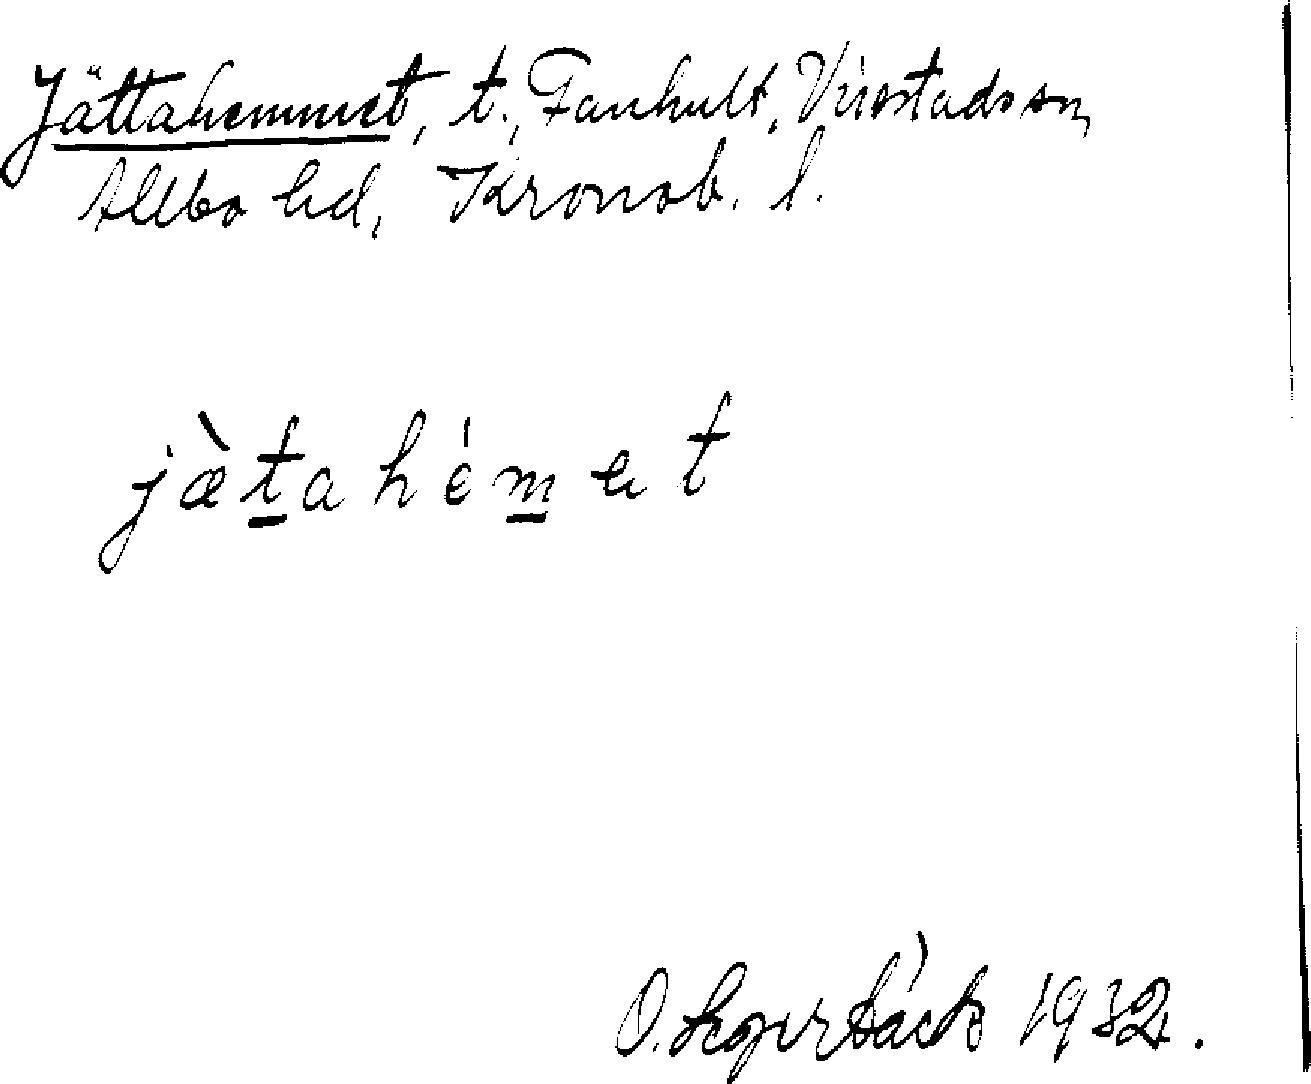 Jättahemmet, t., Fanhult, Virestads sn,
Allbo hd, Kronob. l.
jæ̀t̲ahém̲et
O. 1932.